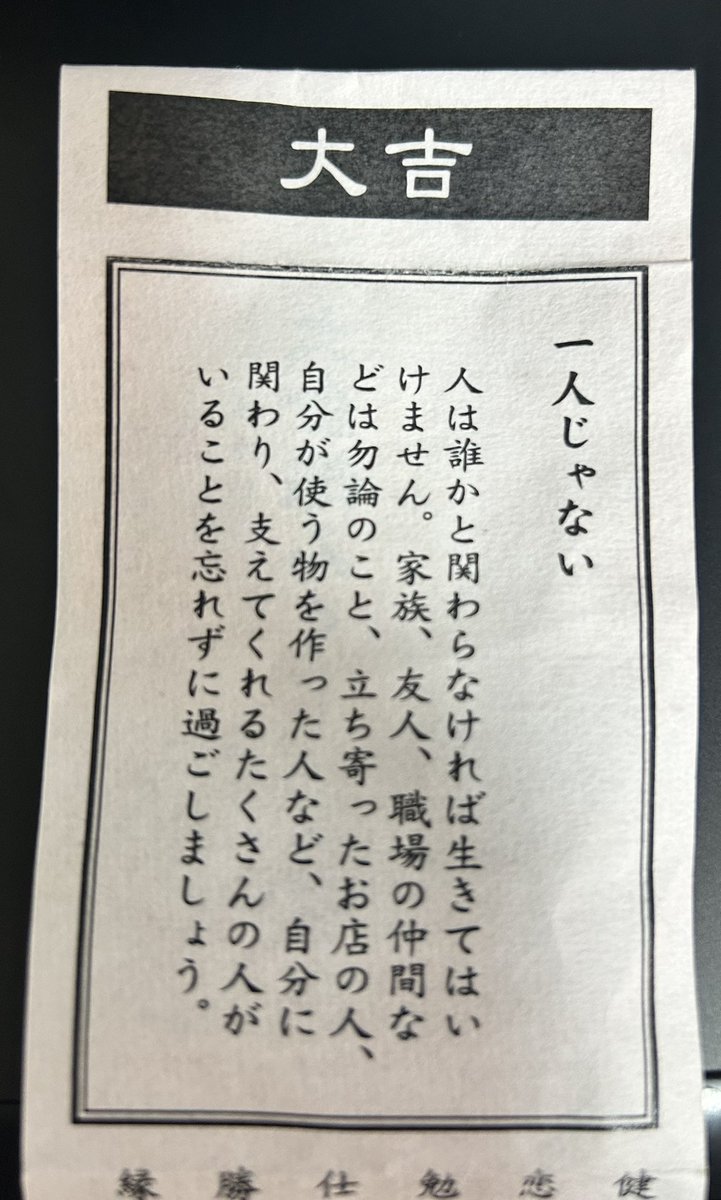 大吉
一人じゃない
人は誰かと関わらなければ生きてはい
けません。家族、友人、職場の仲間な
どは勿論のこと、立ち寄ったお店の人、
自分が使う物を作った人など、自分に
関わり、支えてくれるたくさんの人が
いることを忘れずに過ごしましょう。
健
恋
勉
仕
勝
縁